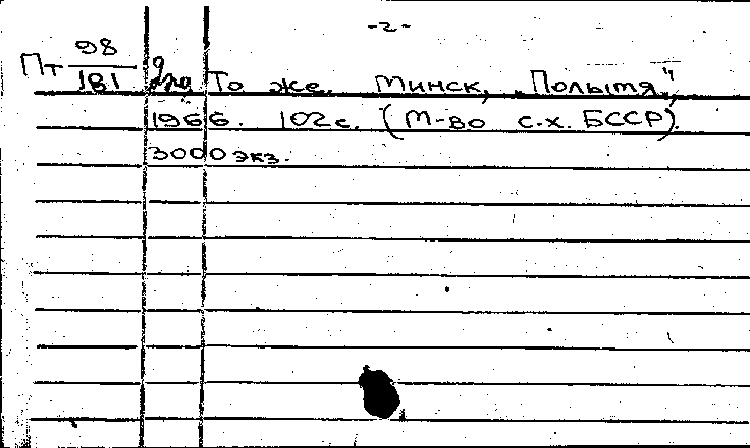 -2-
Пт 98
181 То же. Минск, „Полымя",
1966. 102 с. (М-во с.х. БССР).
3000 экз.